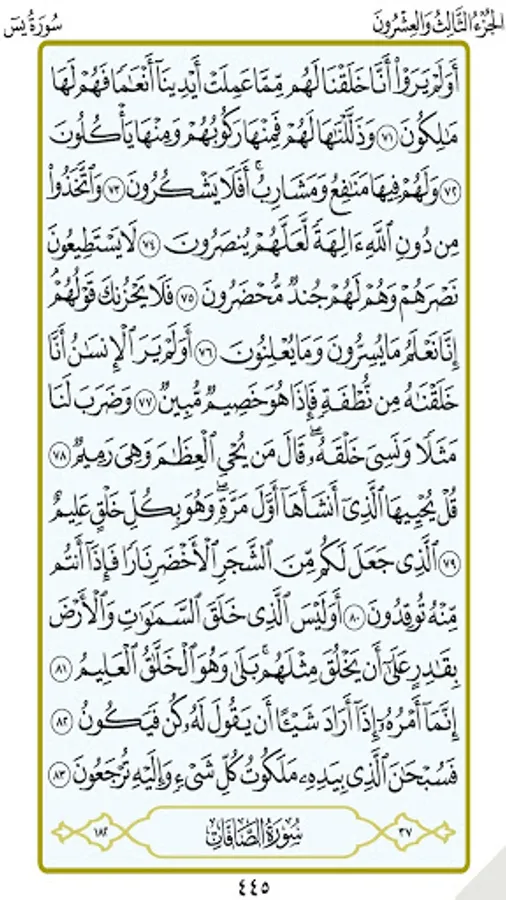 الجُزْءُ الثَّالِثُ وَالعِشْرُونَ
سُورَةُ يسٓ
أَوَلَمْ يَرَوْا۟ أَنَّا خَلَقْنَا لَهُم مِّمَّا عَمِلَتْ أَيْدِينَآ أَنْعَـٰمًا فَهُمْ لَهَا
مَـٰلِكُونَ ٧١ وَذَلَّلْنَـٰهَا لَهُمْ فَمِنْهَا رَكُوبُهُمْ وَمِنْهَا يَأْكُلُونَ
٧٢ وَلَهُمْ فِيهَا مَنَـٰفِعُ وَمَشَارِبُ ۖ أَفَلَا يَشْكُرُونَ ٧٣ وَٱتَّخَذُوا۟
مِن دُونِ ٱللَّهِ ءَالِهَةً لَّعَلَّهُمْ يُنصَرُونَ ٧٤ لَا يَسْتَطِيعُونَ
نَصْرَهُمْ وَهُمْ لَهُمْ جُندٌ مُّحْضَرُونَ ٧٥ فَلَا يَحْزُنكَ قَوْلُهُمْ
إِنَّا نَعْلَمُ مَا يُسِرُّونَ وَمَا يُعْلِنُونَ ٧٦ أَوَلَمْ يَرَ ٱلْإِنسَـٰنُ أَنَّا
خَلَقْنَـٰهُ مِن نُّطْفَةٍ فَإِذَا هُوَ خَصِيمٌ مُّبِينٌ ٧٧ وَضَرَبَ لَنَا
مَثَلًا وَنَسِىَ خَلْقَهُۥ ۖ قَالَ مَن يُحْىِ ٱلْعِظَـٰمَ وَهِىَ رَمِيمٌ ٧٨
قُلْ يُحْيِيهَا ٱلَّذِىٓ أَنشَأَهَآ أَوَّلَ مَرَّةٍ ۖ وَهُوَ بِكُلِّ خَلْقٍ عَلِيمٌ
٧٩ ٱلَّذِى جَعَلَ لَكُم مِّنَ ٱلشَّجَرِ ٱلْأَخْضَرِ نَارًا فَإِذَآ أَنتُم
مِّنْهُ تُوقِدُونَ ٨٠ أَوَلَيْسَ ٱلَّذِى خَلَقَ ٱلسَّمَـٰوَٰتِ وَٱلْأَرْضَ
بِقَـٰدِرٍ عَلَىٰٓ أَن يَخْلُقَ مِثْلَهُم ۚ بَلَىٰ وَهُوَ ٱلْخَلَّـٰقُ ٱلْعَلِيمُ ٨١
إِنَّمَآ أَمْرُهُۥٓ إِذَآ أَرَادَ شَيْـًٔا أَن يَقُولَ لَهُۥ كُن فَيَكُونُ ٨٢
فَسُبْحَـٰنَ ٱلَّذِى بِيَدِهِۦ مَلَكُوتُ كُلِّ شَىْءٍ وَإِلَيْهِ تُرْجَعُونَ ٨٣
٣٧ سُورَةُ الصَّافَّاتِ ١٨٢
٤٤٥